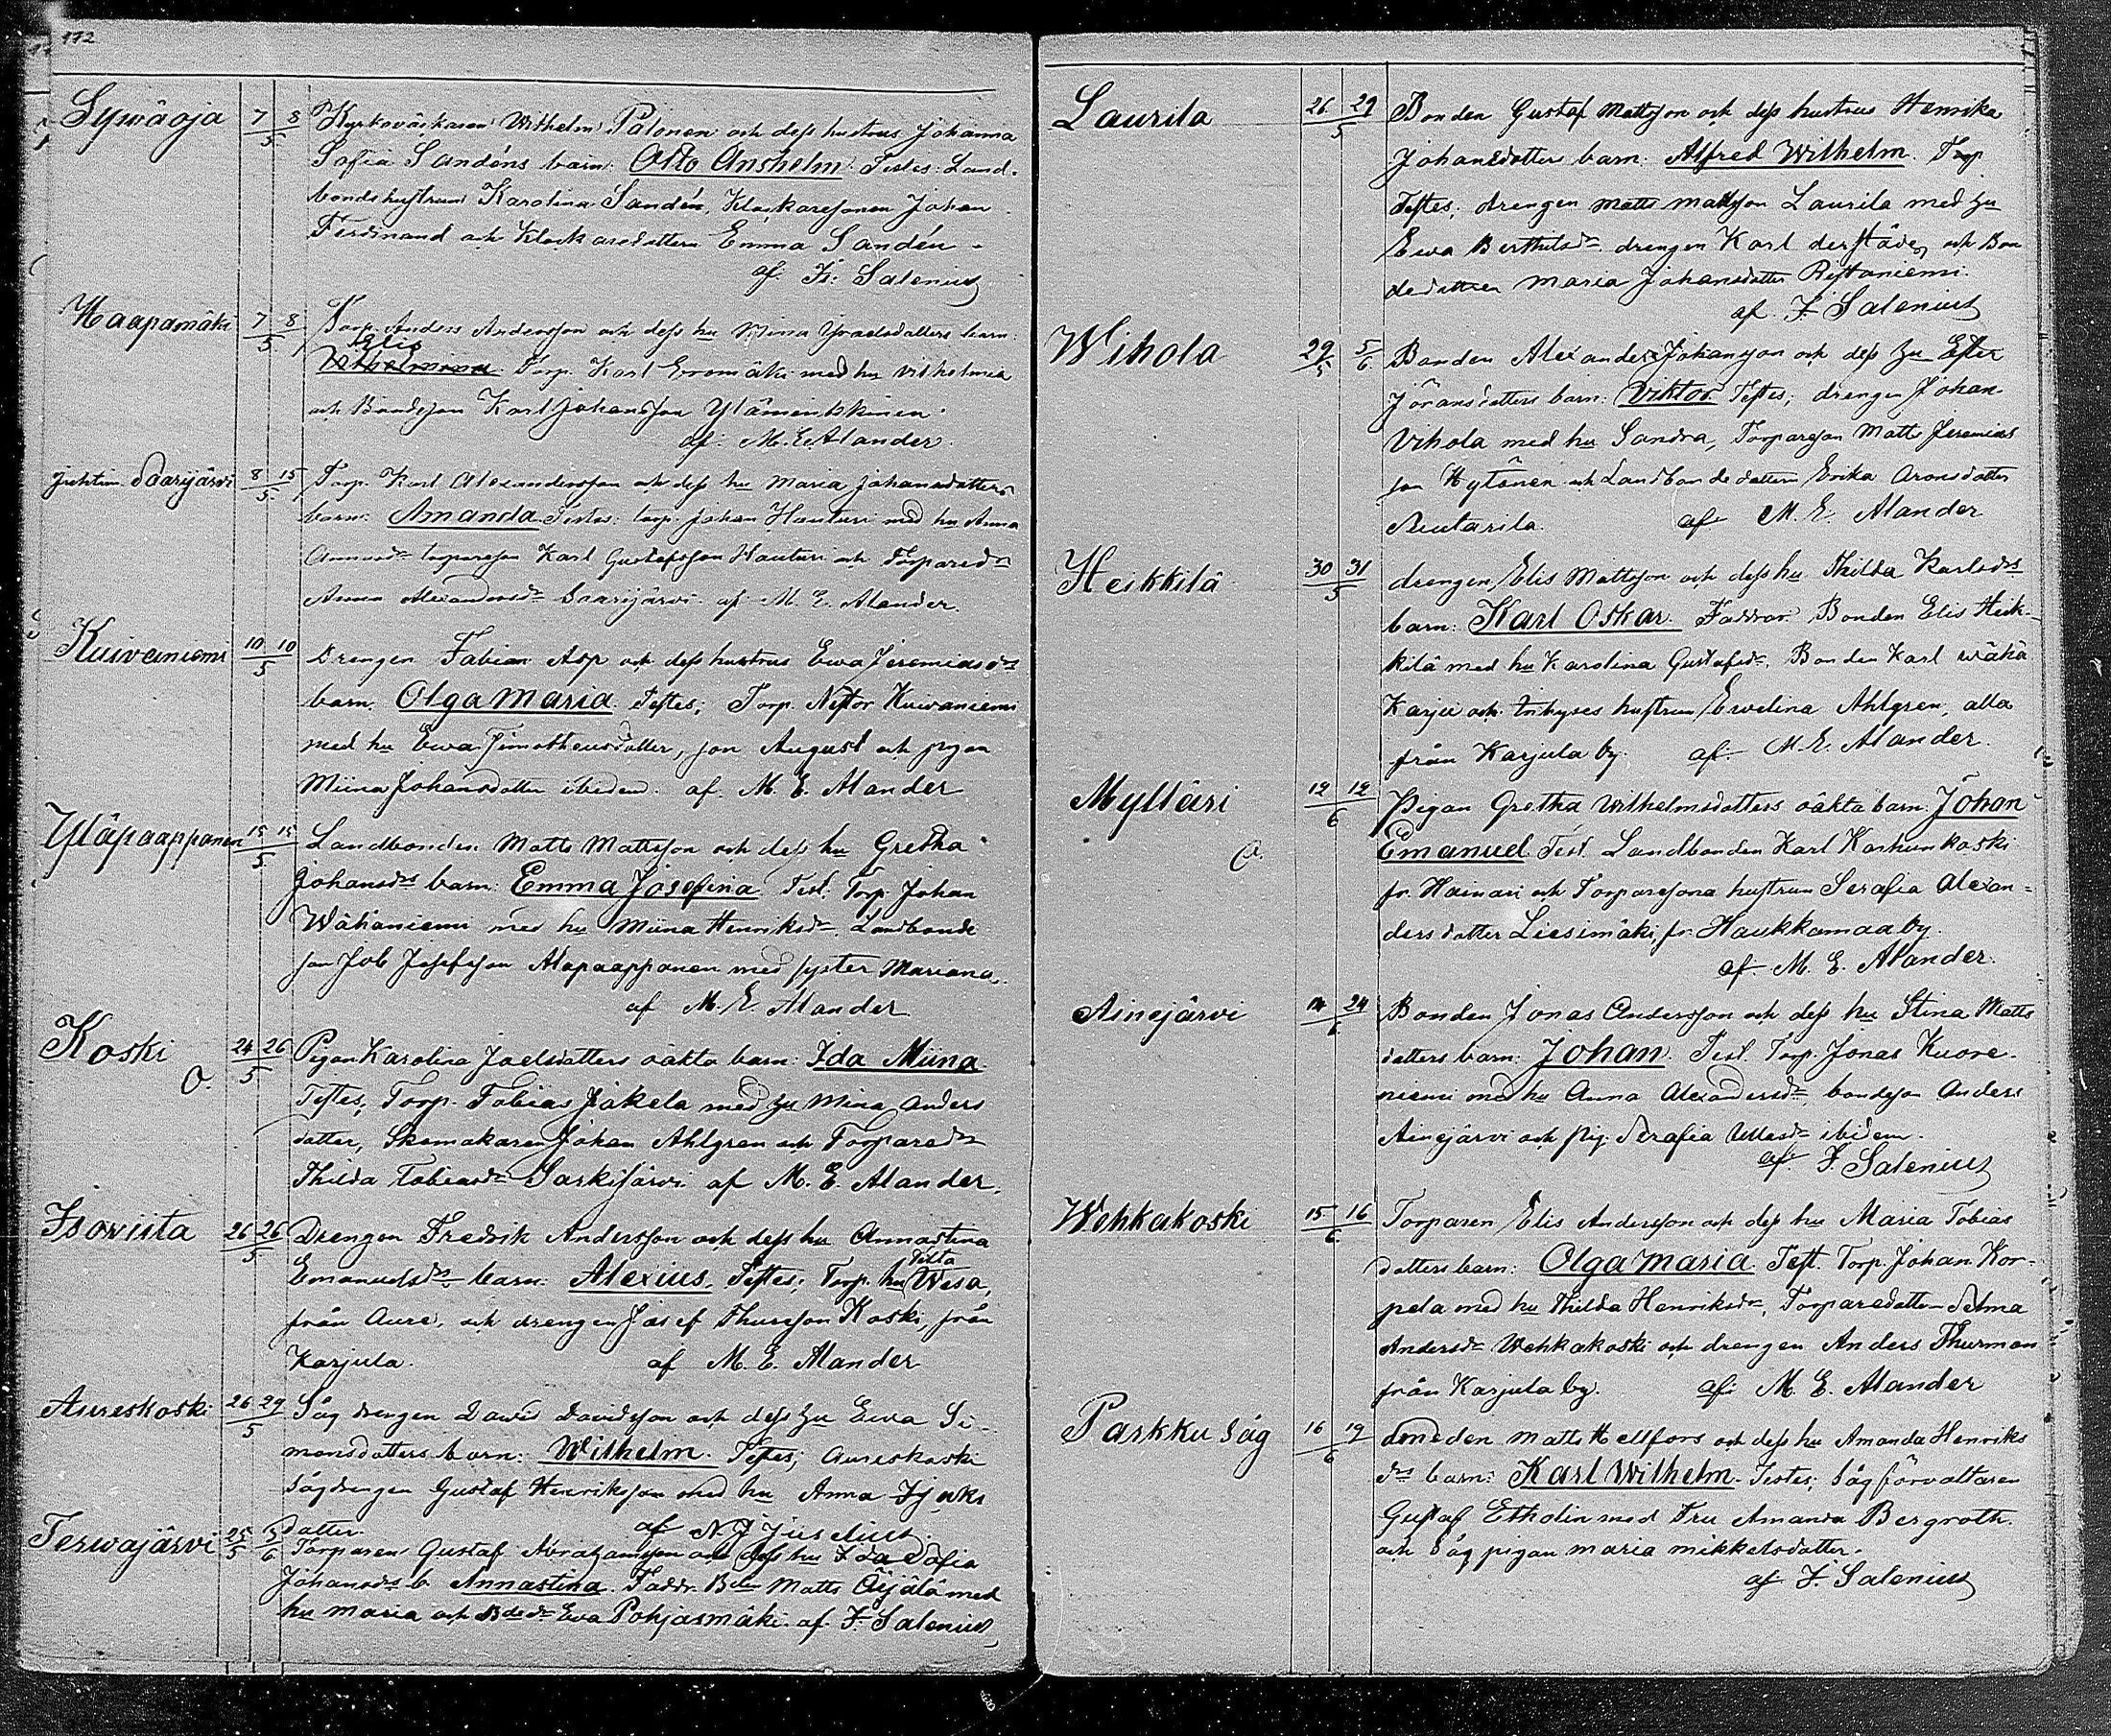 172
Sywäoja 7 8/5 Kyrkoväktaren Wilhelm Palonen och dess hustrus Johanna
Sofia Sandéns barn: Otto Anshelm. Testes: Land-
bondehustrun Karolina Sandén, Klockaresonen Johan
Ferdinand och Klockaredottern Emma Sandén.
af F. Salenius
Haapamäki 7 8/5 Torp. Anders Andersson och dess hu Mina Israelsdotters barn:
Elis
Wilhelmina Torp. Karl Eromäki med hu Vilhelmina
och Bondeson Karl Johansson Yläminkkinen.
af M. E. Alander.
Saarijärvi 8 15/5 Torp. Karl Alexandersson och dess hu Maria Johansdotters
barn: Amanda. Testes: torp. Johan Hauturi med hu Anna
torpareson Karl Gustafsson Hauturi och Torpared:r
Anna Alexandersd:r Saarijärvi. af M. E. Alander.
Kuivaniemi 10 10/5 Drengen Fabian Asp och dess hustrus Ewa Jeremiasd:rs
barn: Olga Maria. Testes; Torp. Nestor Kuivaniemi
med hu Ewa Timotheusdotter, son August och pigan
Miina Johansdotter ibidem. af M. E. Alander
Yläpaappanen 15 15/5 Landbonden Matts Mattsson och dess hu Gretha
Johansd:rs barn: Emma Josefina Test. Torp. Johan
Wähäniemi med hu Miina Henriksd:r, Landbonde
son Job Josefsson Alapaappanen med syster Mariana,
af M. E. Alander
Koski 24 26/5 Pigan Karolina Joelsdotters oäkta barn: Ida Miina
O. Testes; Torp. Tobias Jäkelä med hu Mina Anders
dotter, Skomakaren Johan Ahlgren och Torpared:r
Thilda Tobiasd:r Särkijärvi af M. E. Alander.
Isoviita 26 26/5 Drengen Fredrik Andersson och dess hu Annastina
Emanuelsd:rs barn: Alexius. Testes; Torp. hu Wesa,
från Aure, och drengen Josef Thuresson Koski, från
Karjula. af M. E. Alander
Aureskoski 26 29/5 Såg drengen David Davidsson och dess hu Ewa Si-
monsdotters barn: Wilhelm. Testes; Aureskoski
Sågdrengen Gustaf Henriksson med hu Anna Isaks
dotter. af N. J. Juselius.
Terwajärvi 25/5 5/6 Torparen Gustaf Abrahamsson och dess hu Ida Sofia
Johansd:rs b. Annastina. Faddr. B:den Matts Öijälä med
hu Maria och B:ded:r Ewa Pohjasmäki. af F. Salenius
Laurila 26 29/5 Bonden Gustaf Mattsson och dess hustrus Henrika
Johansdotters barn: Alfred Wilhelm. Torp
Testes; drengen Matts Mattsson Laurila med hu
Ewa Berthilsd:r drengen Karl derstädes och Bon
dedottren Maria Johansdotter Ristaniemi.
af F. Salenius
Wihola 29/5 5/6 Bonden Alexander Johansson och dess hu Ester
Jöransdotters barn: Viktor. Testes; drengen Johan
Vihola med hu Sandra, Torpareson Matts Jeremias
son Hytönen och Landbondedottern Erika Aronsdotter
Rautarila. af M. E. Alander
Heikkilä 30 31/5 drengen Elis Mattsson och dess hu Thilda Karlsd:rs
barn: Karl Oskar. Faddrar Bonden Elis Heik-
kilä med hu Karolina Gustafsd:r, Bonden Karl Wähä
Karju och Inhyses hustrun Evelina Ahlgren, alla
från Karjula by. af M. E. Alander.
Mylläri 12 12/6 Pigan Gretha Wilhelmsdotters oäkta barn: Johan
O. Emanuel. Test. Landbonden Karl Karhunkoski
fr. Hainari och Torparesons hustrun Serafia Alexan-
dersdotter Liesimäki, fr. Haukkamaa by.
af M. E. Alander.
Ainejärvi 14 24/6 Bonden Jonas Andersson och dess hu Stina Matts
dotters barn: Johan. Test. Torp. Jonas Kuore-
niemi med hu Anna Alexandersd:r, bondeson Anders
Ainejärvi och pig. Serafia ibidem.
af F. Salenius
Wehkakoski 15 16/6 Torparen Elis Andersson och dess hu Maria Tobias
dotters barn: Olga Maria. Test. Torp. Johan Kor-
pela med hu Thilda Henriksd:r, Torparedottern Selma
Andersd:r Wehkakoski och drengen Anders Thurman
från Karjula by. af M. E. Alander
Parkku såg 16 19/6 Smeden Matts Hellfors och dess hu Amanda Henriks
d:rs barn: Karl Wilhelm. Testes; Såg förvaltaren
Gustaf Etholin med Fru Amanda Bergroth.
och Såg pigan Maria Mikkelsdotter.
af F. Salenius